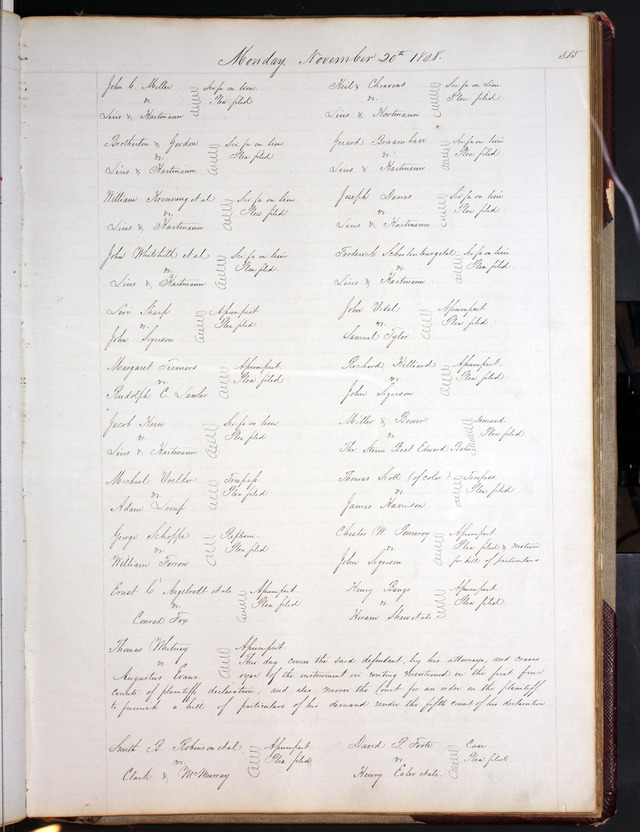 Monday, November 20th 1848. 385
John C Miller Sci fa on lien
vs. Plea filed
Lins & Hartmann
Keil & Cheavens Sci fa on Lien
vs. Plea filed
Lins & Hartmann
Brotherton & Gordon Sci fa on lien
vs. Plea filed
Lins & Hartmann
Gerard Sci fa on lien
vs. Plea filed
Lins & Hartmann
William et al Sci fa on lien
vs. Plea filed
Lins & Hartmann
Joseph Davis Sci fa on lien
vs. Plea filed
Lins & Hartmann
John Whitehill et al Sci fa on lien
vs. Plea filed
Lins & Hartmann
Frederick Schulenburg et al Sci fa on lien
vs. Plea filed
Lins & Hartmann
Levi Sharp Assumpsit
vs. Plea filed
John Sigerson
John Vital Assumpsit
vs. Plea filed
Samuel Tyler
Margaret Assumpsit
vs. Plea filed
Rudolph C.
Richard Hilliard Assumpsit
vs. Plea filed
John Sigerson
Jacob Kern Sci fa on lien
vs. Plea filed
Lins & Hartmann
Miller & Bower Demand
vs. Plea filed
The Steam Boat Edward Bates
Michael Trespass
vs. Plea filed
Adam Lemp
Thomas Scott (of color) Trespass
vs. Plea filed
James Harrison
George Schoffe
vs. Plea filed
William
Chester W. Pomeroy Assumpsit
vs. Plea filed & motion
John Sigerson for bill of particulars
Ernst C Angelrodt et als Assumpsit
vs. Plea filed
Conrad Fox
Henry Bange Assumpsit
vs Plea filed
Hiram Shaw et als
Thomas Whitney Assumpsit
vs. This day comes the said defendant, by his attorneys, and craves
Augustus Evans. oyer of the instrument in writing mentioned in the first four
counts of plaintiffs declaration, and also moves the Court for an order on the plaintiff
to furnish a bill of particulars of his demand under the fifth count of his declaration
Smith B. Robinson et al Assumpsit
vs. Plea filed
Clark & McMurray
David P. Foote Case
vs. Plea filed
Henry Ealer et als.